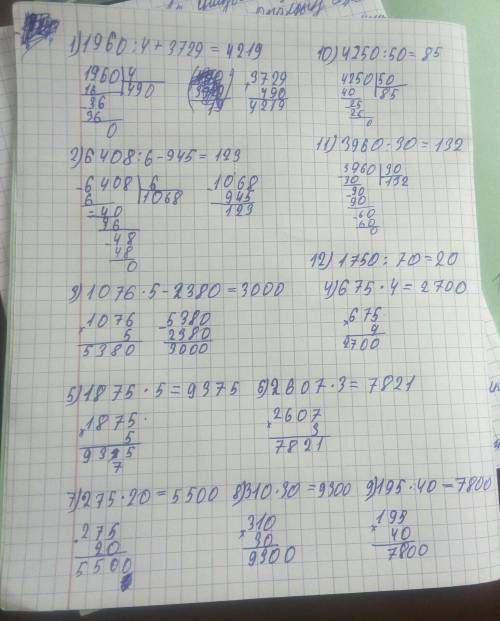 1) 1960 : 4 + 3729 = 4219
1960 | 4
16 | 490
- 36
36
0
+ 3729
490
4219
10) 4250 : 50 = 85
4250 | 50
40 | 85
25
25
0
2) 6408 : 6 - 945 = 123
- 6408 | 6
6 | 1068
- 40
36
- 48
48
0
- 1068
945
123
11) 3960 : 30 = 132
3960 | 30
- 30 | 132
- 90
90
- 60
60
0
12) 1750 : 70 = 20
3) 1076 · 5 - 2380 = 3000
x 1076
5
5380
- 5380
2380
3000
4) 675 · 4 = 2700
x 675
4
2700
5) 1875 · 5 = 9375
x 1875
5
9375
7
6) 2607 · 3 = 7821
x 2607
3
7821
7) 275 · 20 = 5500
275
20
5500
8) 310 · 30 = 9300
x 310
30
9300
9) 195 · 40 = 7800
x 195
40
7800